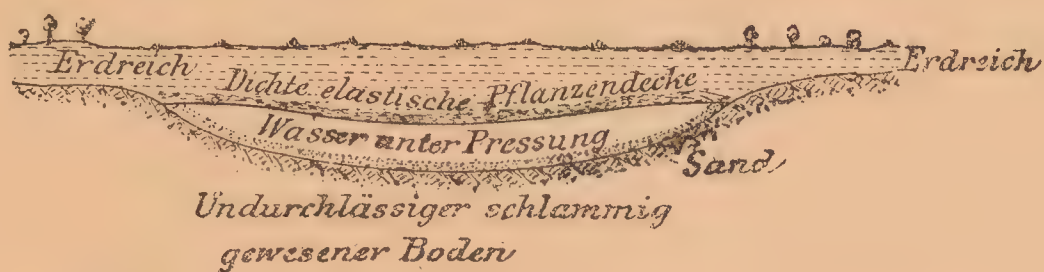 Erdreich
Erdreich
Dichte elastische Pflanzendecke
Wasser unter Pressung
Sand
Undurchlässiger schlammig
gewesener Boden